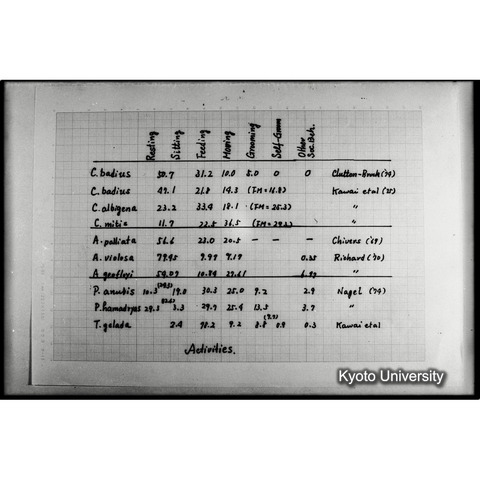 Resting Sitting Feeding Moving Grooming Self-Groom Other Soc. Beh.
C. badius 50.7 31.2 10.0 5.0 0 0 Clutton-Brock ('74)
C. badius 49.1 21.8 14.3 Kawai et al
C. albigena 23.2 33.4 18.1 (IM = 25.3) "
C. mitis 11.7 22.5 36.5 "
A. palliata 56.6 23.0 20.5 — — — Chivers ('69)
A. villosa 79.95 9.97 9.19 0.25 Richard ('70)
A. geoffroyi 54.07 10.84
P. anubis 10.3 19.0 30.3 25.0 9.2 2.9 Nagel ('74)
P. hamadryas 29.3 3.3 29.7 25.4 13.5 3.7 "
T. gelada 2.4 9.2 8.8 (9.7) 0.9 0.3 Kawai et al
Activities.
Kyoto University